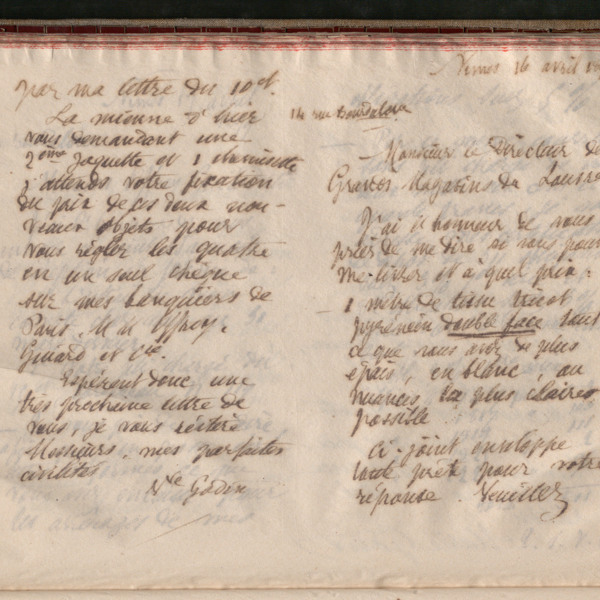 par ma lettre du 10 ct.
La mienne d'hier
vous demandant une
2ème jaquette et 1 chemisette
j'attends votre fixation
du prix de ces deux nou-
veaux objets pour
vous régler les quatre
en un seul chèque
sur mes banquiers de
Paris. M.M.
Guiard et Cie.
Espérant donc une
très prochaine lettre de
vous, je vous réitère
Messieurs, mes parfaites
civilités
Vve Godin
Nimes 16 avril
14 rue Bourdaloue
Monsieur le Directeur de
Grands Magasins du Louvre
J'ai l'honneur de vous
prier de me dire si vous pour
me livrer et à quel prix:
1 mètre de tissu tricot
pyrénéen double face tout
ce que vous avez de plus
épais, en blanc, ou
nuances les plus claires
possible.
Ci-joint enveloppe
toute prête pour votre
réponse. Veuillez